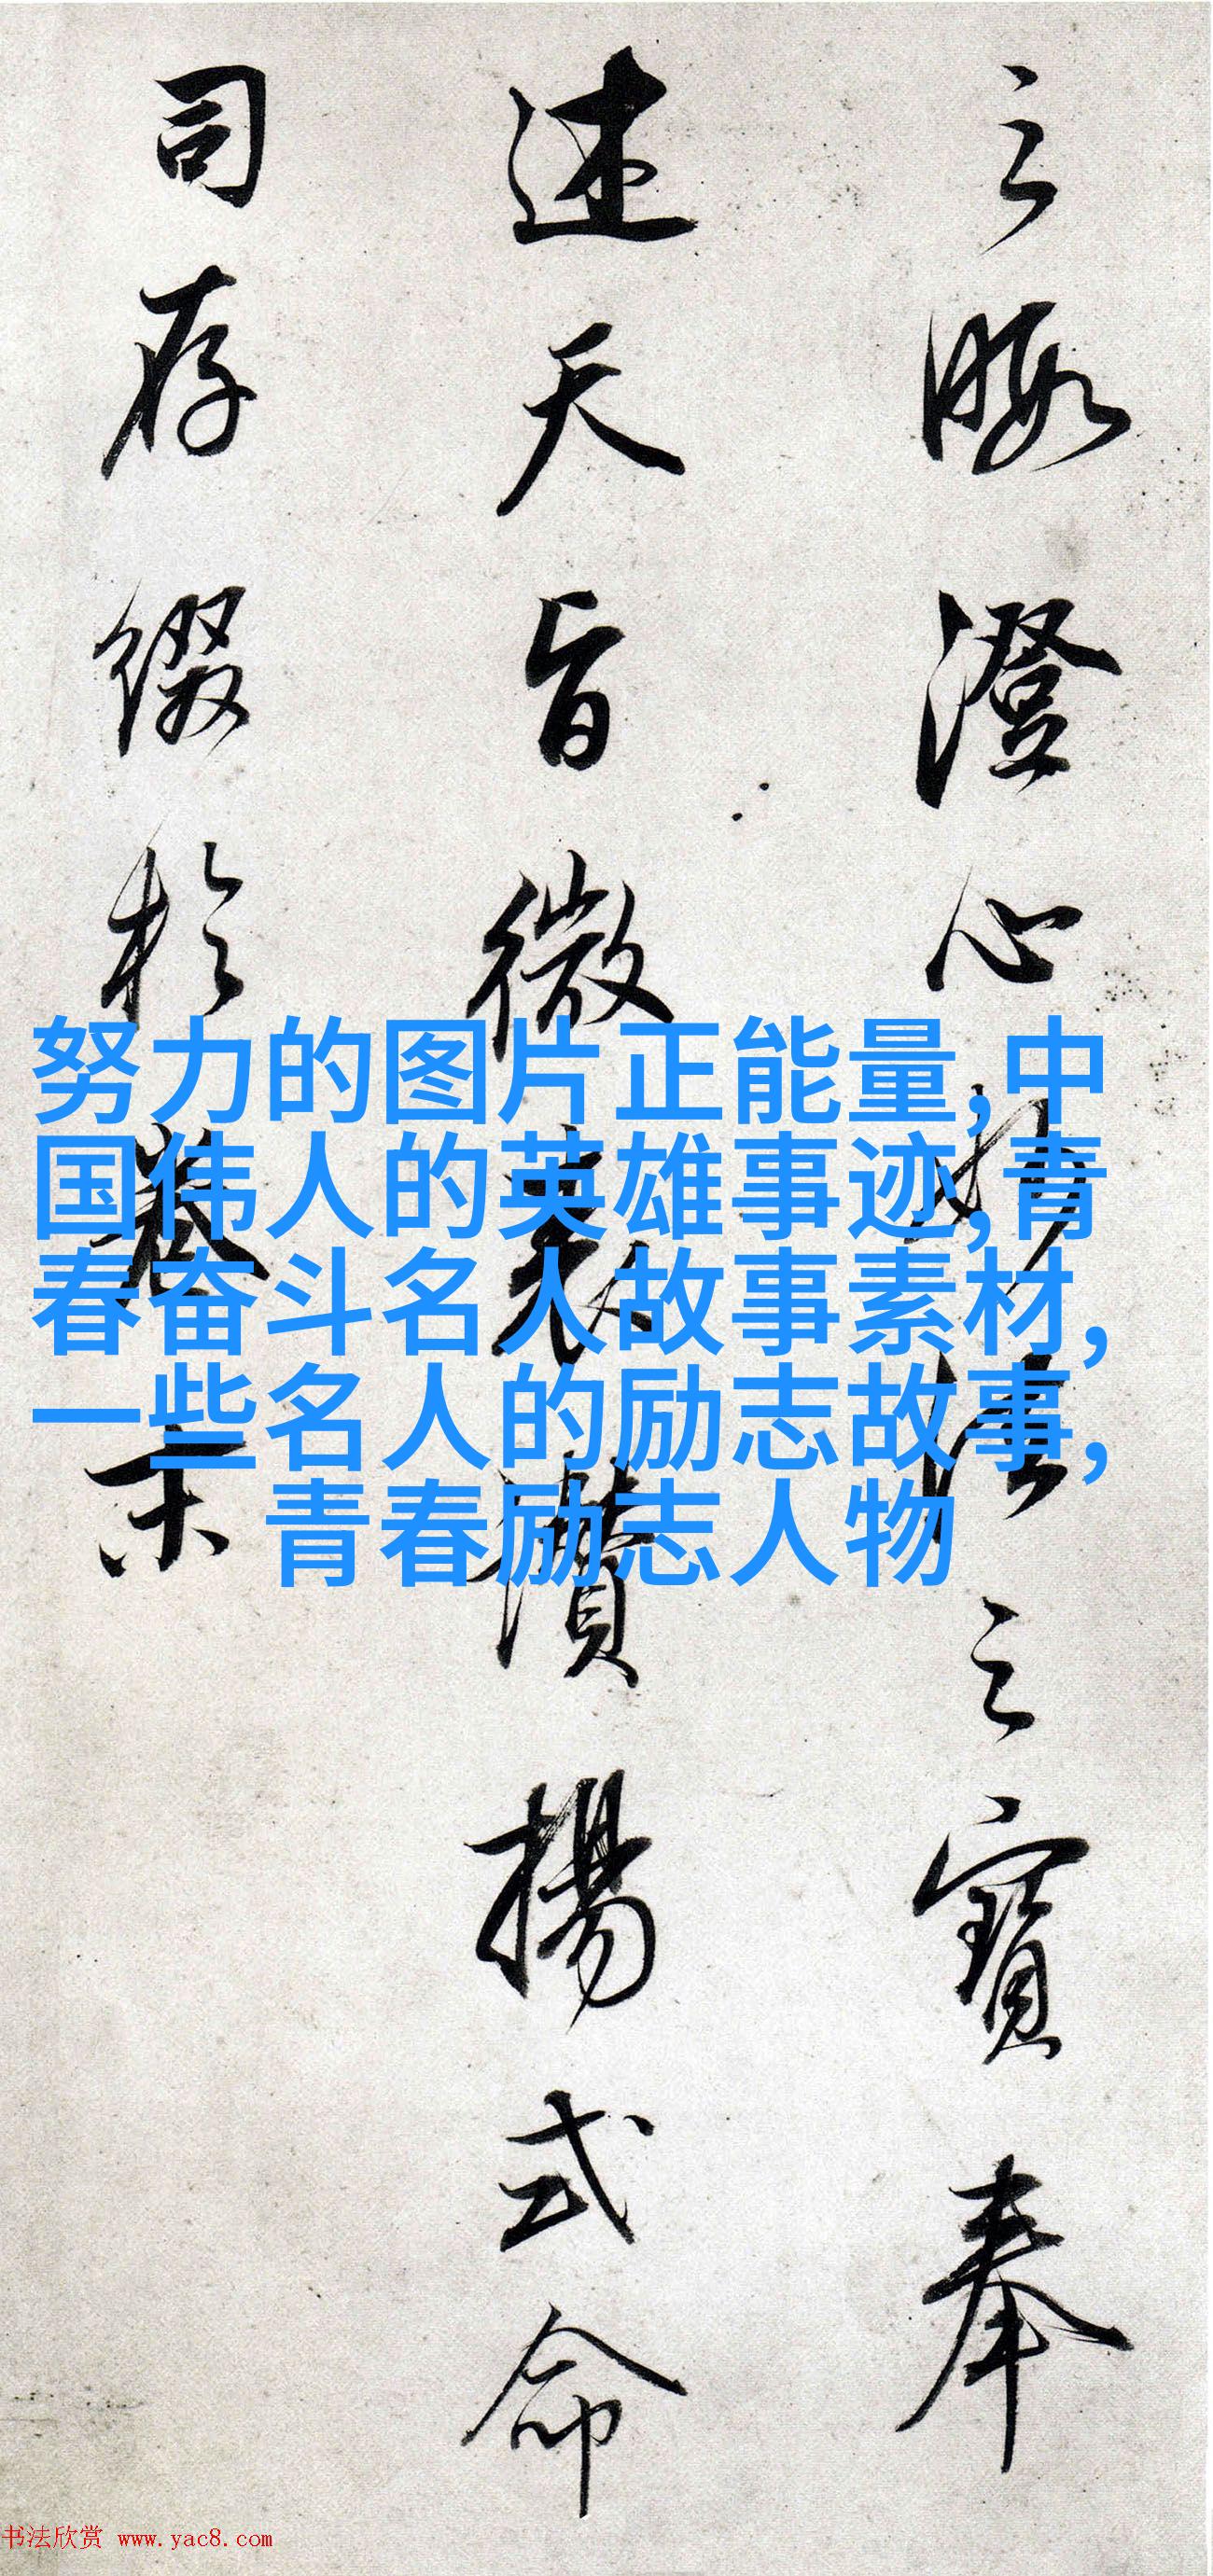 之暇澄心妙法之寶奉
述天旨微表讚揚式命
司存綴於卷末
努力的图片正能量,中
国伟人的英雄事迹,青
春奋斗名人故事素材,
一些名人的励志故事,
青春励志人物
书法欣赏 www.yac8.com